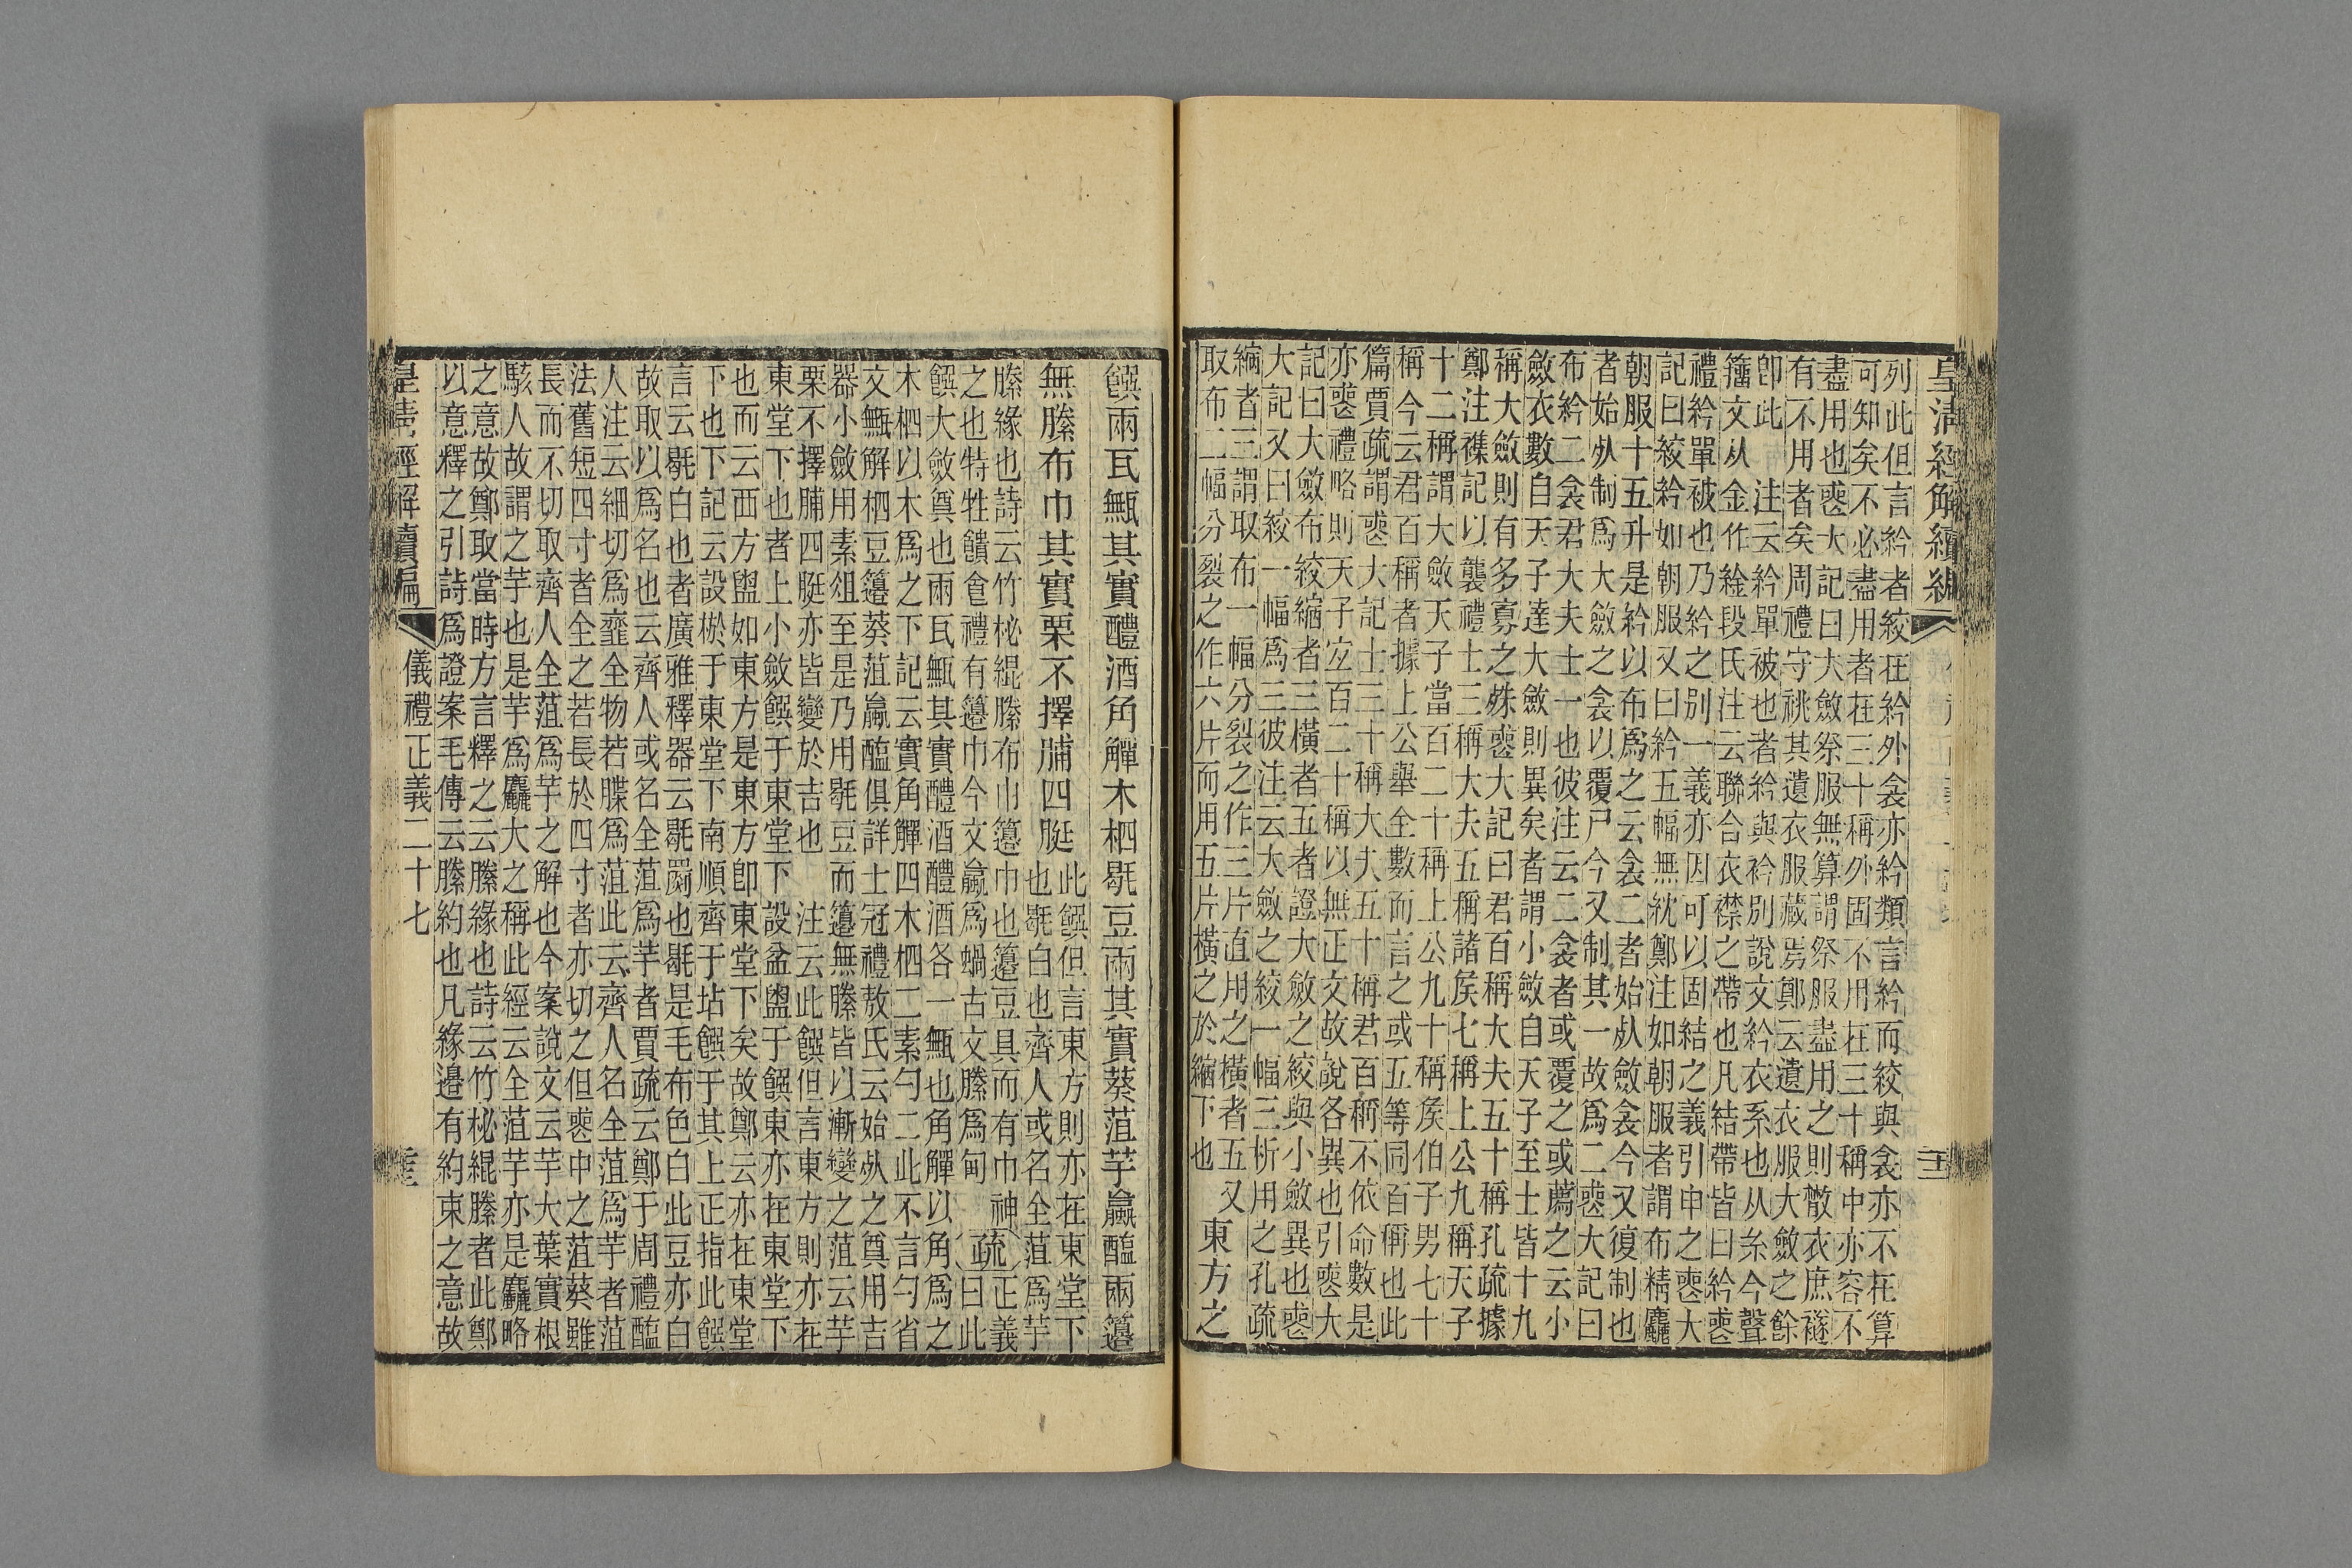 皇清經解續編
列此但言紟者絞在紟外衾亦紟類言紟而絞與衾亦不在算
可知矣不必盡用者在三十稱外固不用在三十稱中亦容不
盡用也喪大記曰大斂祭服無算謂祭服盡用之則散衣庶襚
有不用者矣周禮守祧其遺衣服藏焉鄭云遺衣服大斂之餘
卽此　注云紟單被也者紟與衿別說文紟衣系也从糸今聲
籀文从金作䋮段氏注云聯合衣襟之帶也凡結帶皆曰紟喪
禮紟單被也乃紟之別一義亦因可以固結之義引申之喪大
記曰絞紟如朝服又曰紟五幅無紞鄭注如朝服者謂布精麤
朝服十五升是紟以布爲之云衾二者始𠈇斂衾今又復制也
者始𠈇制爲大斂之衾以覆尸今又制其一故爲二喪大記曰
布紟二衾君大夫士一也彼注云二衾者或覆之或薦之云小
斂衣數自天子達大斂則異矣者謂小斂自天子至士皆十九
稱大斂則有多寡之殊喪大記曰君百稱大夫五十稱孔疏據
鄭注襍記以襲禮士三稱大夫五稱諸矦七稱上公九稱天子
十二稱謂大斂天子當百二十稱上公九十稱矦伯子男七十
稱今云君百稱者據上公舉全數而言之或五等同百稱也此
篇賈疏謂喪大記士三十稱大夫五十稱君百稱不依命數是
亦喪禮略則天子宐百二十稱以無正文故說各異也引喪大
記曰大斂布絞縮者三橫者五者證大斂之絞與小斂異也喪
大記又曰絞一幅爲三彼注云大斂之絞一幅三析用之孔疏
縮者三謂取布一幅分裂之作三片直用之橫者五又
取布二幅分裂之作六片而用五片橫之於縮下也
東方之
饌兩瓦甒其實醴酒角觶木柶毼豆兩其實葵菹芋蠃醢兩籩
無縢布巾其實栗不擇脯四脡
此饌但言東方則亦在東堂下
也毼白也齊人或名全菹爲芋
縢緣也詩云竹柲緄縢布巾籩巾也籩豆具而有巾神
之也特牲饋食禮有籩巾今文蠃爲蝸古文縢爲甸
疏
正義
曰此
饌大斂奠也兩瓦甒其實醴酒醴酒各一甒也角觶以角爲之
木柶以木爲之下記云實角觶四木柶二素勺二此不言勺省
文甒解柶豆籩葵菹蠃醢俱詳士冠禮敖氏云始𠈇之奠用吉
器小斂用素俎至是乃用毼豆而籩無縢皆以漸變之菹云芋
栗不擇脯四脡亦皆變於吉也　注云此饌但言東方則亦在
東堂下也者上小斂饌于東堂下　設盆盥于饌東亦在東堂下
也而云西方盥如東方是東方卽東堂下矣故鄭云亦在東堂
下也下記云設棜于東堂下南順齊于坫饌于其上正指此饌
言云毼白也者廣雅釋器云毼罽也毼是毛布色白此豆亦白
故取以爲名也云齊人或名全菹爲芋者賈疏云鄭于周禮醢
人注云細切爲虀全物若䐑爲菹此云齊人名全菹爲芋者菹
法舊短四寸者全之若長於四寸者亦切之但喪中之菹葵雖
長而不切取齊人全菹爲芋之解也今案說文云芋大葉實根
駭人故謂之芋也是芋爲麤大之稱此經云全菹芋亦是麤略
之意故鄭取當時方言釋之云縢緣也詩云竹柲緄縢者此鄭
以意釋之引詩爲證案毛傳云縢約也凡緣邊有約束之意故
皇清經解續編
儀禮正義二十七